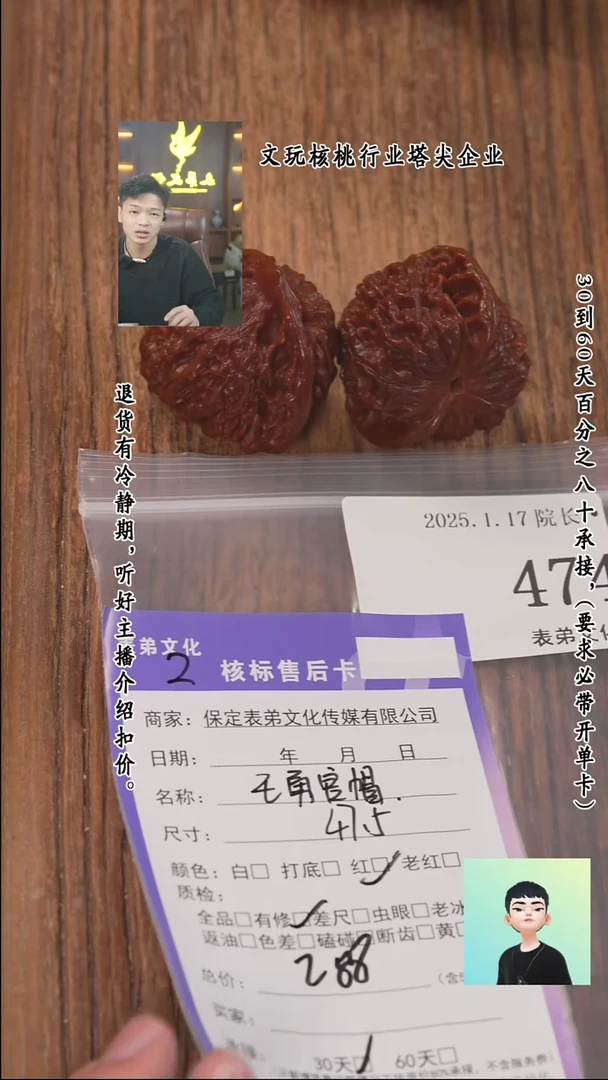 文玩核桃行业塔尖企业
30到60天百分之八十承接,(要求必带开单卡)
退货有冷静期,听好主播介绍扣价。
2025.1.17 院长
474
表弟文化
表弟文化
2
核标售后卡
商家: 保定表弟文化传媒有限公司
日期: 年 月 日
名称: 官帽.
尺寸: 475
颜色: 白□ 打底□ 红☑ 老红□
质检:
全品□有修☑差尺□虫眼□老冰
返油□色差□磕碰□断齿□黄□
总价: 288 (含
买家:
30天☑ 60天□
承接, 不含服务费)